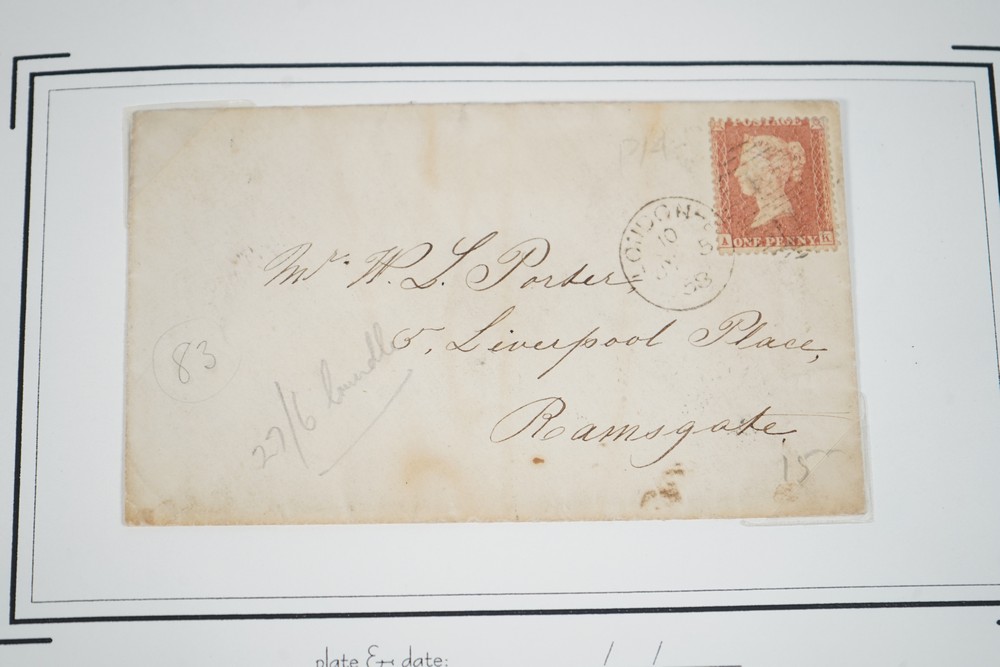 POSTAGE
A ONE PENNY K
LONDON
10
5
58
Mr. W. L. Porter,
5, Liverpool Place,
Ramsgate.
83
27/6
15
plate & date: / /